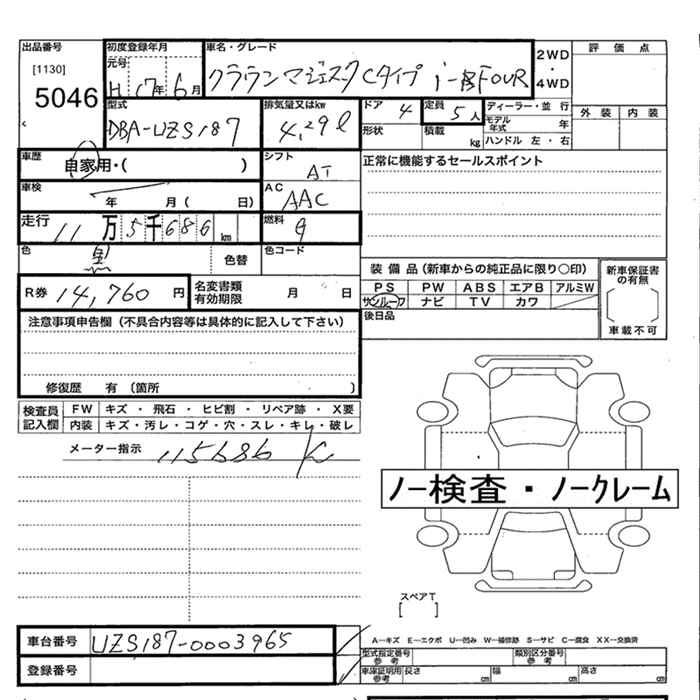 出品番号
[1130]
5046
初度登録年月
元号
H 17年 6月
車名・グレード
クラウンマジェスタCタイプ i-FOUR
2WD
・
4WD
評価点
外装 内装
型式
DBA-UZS187
排気量又はkw
4.29ℓ
ドア 4
形状
定員 5人
積載 kg
ディーラー・並行
モデル年式 年
ハンドル 左・右
車歴
自家用・( )
シフト
AT
正常に機能するセールスポイント
車検
年 月 ( 日)
AC
AAC
走行 11万5千686km
燃料
色 黒 色替
色コード
R券 14,760円
名変書類有効期限 月 日
装備品(新車からの純正品に限り○印)
PS PW ABS エアB アルミW
サンルーフ ナビ TV カワ
後日品
新車保証書の有無
車載不可
注意事項申告欄(不具合内容等は具体的に記入して下さい)
修復歴 有(箇所 )
検査員記入欄
FW キズ・飛石・ヒビ割・リペア跡・X要
内装 キズ・汚レ・コゲ・穴・スレ・キレ・破レ
メーター指示 115686 K
ノー検査・ノークレーム
スペアT
[ ]
車台番号 UZS187-0003965
登録番号
A―キズ E―エクボ U―凹み W―補修跡 S―サビ C―腐食 XX―交換済
型式指定番号 参考
類別区分番号 参考
車庫証明用 参考
長さ cm 幅 cm 高さ cm